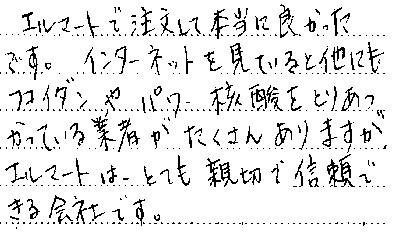 エルマートで注文して本当に良かった
です。インターネットを見ていると他にも
フコイダンやパワー核酸をとりあつ
かっている業者がたくさんありますが、
エルマートは、とても親切で信頼で
きる会社です。